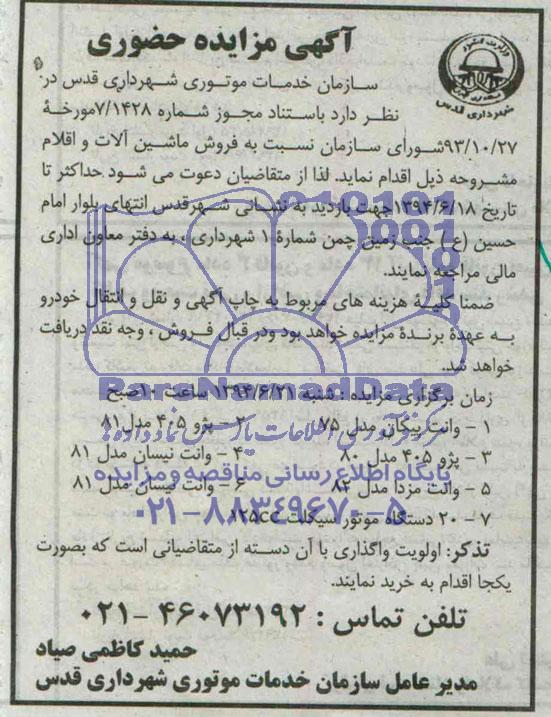 آگهی مزایده حضوری
شهرداری قدس
سازمان خدمات موتوری شهرداری قدس در
نظر دارد باستناد مجوز شماره ۷/۱۴۲۸مورخهٔ
۹۳/۱۰/۲۷شورای سازمان نسبت به فروش ماشین آلات و اقلام
مشروحه ذیل اقدام نماید. لذا از متقاضیان دعوت می شود حداکثر تا
تاریخ ۱۳۹۴/۶/۱۸جهت بازدید به نشانی شهرقدس انتهای بلوار امام
حسین (ع) جنب زمین چمن شمارهٔ ۱ شهرداری ، به دفتر معاون اداری
مالی مراجعه نمایند.
ضمنا کلیه هزینه های مربوط به چاپ آگهی و نقل و انتقال خودرو
به عهدهٔ برندهٔ مزایده خواهد بود ودر قبال فروش ، وجه نقد دریافت
خواهد شد.
ParsNamadData
زمان برگزاری مزایده : شنبه ۱۳۹۴/۶/۲۱ ساعت ۱۰صبح
۱ - وانت پیکان مدل ۷۵
۲ - پژو ۴۰۵ مدل۸۱
۳ - پژو ۴۰۵ مدل ۸۰
۴ - وانت نیسان مدل ۸۱
پایگاه اطلاع رسانی مناقصه و مزایده
۵ - وانت مزدا مدل ۸۲
۶ - وانت نیسان مدل ۸۱
۰۲۱-۸۸۳۴۹۶۷۰-۵
۷ - ۲۰ دستگاه موتور سیکلت ۱۲۵cc
تذکر: اولویت واگذاری با آن دسته از متقاضیانی است که بصورت
یکجا اقدام به خرید نمایند.
تلفن تماس : ۴۶۰۷۳۱۹۲ -۰۲۱
حمید کاظمی صیاد
مدیر عامل سازمان خدمات موتوری شهرداری قدس